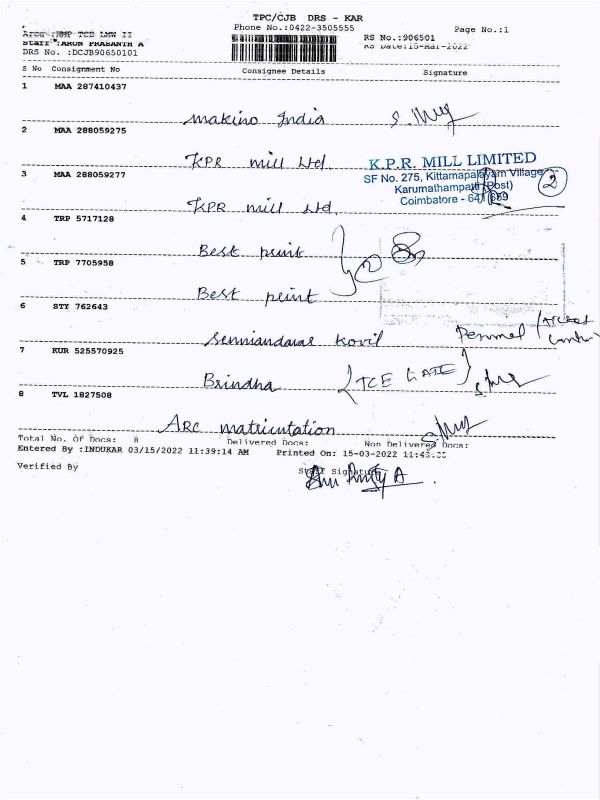 TPC/CJB DRS - KAR
Phone No.:0422-3505555
Page No.:1
Area :KMP TCE LMW II
RS No.:906501
Staff :ARUN PRASANTH A
RS Date:15-Mar-2022
DRS No. :DCJB90650101
S No Consignment No Consignee Details Signature
1 MAA 287410437
Makino India
2 MAA 288059275
KPR mill Ltd
K.P.R. MILL LIMITED
3 MAA 288059277
SF No. 275, Kittamapalayam Village
Karumathampatti (Post)
2
Coimbatore - 641 659
KPR mill Ltd.
4 TRP 5717128
Best print
2
5 TRP 7705958
Best print
6 STY 762643
Kovil
7 KUR 525570925
Brindha {TCE GATE}
8 TVL 1827508
ARC matriculation
Total No. Of Docs: 8 Delivered Docs: Non Delivered Docs:
Entered By :INDUKAR 03/15/2022 11:39:14 AM Printed On: 15-03-2022
Verified By Staff Signature